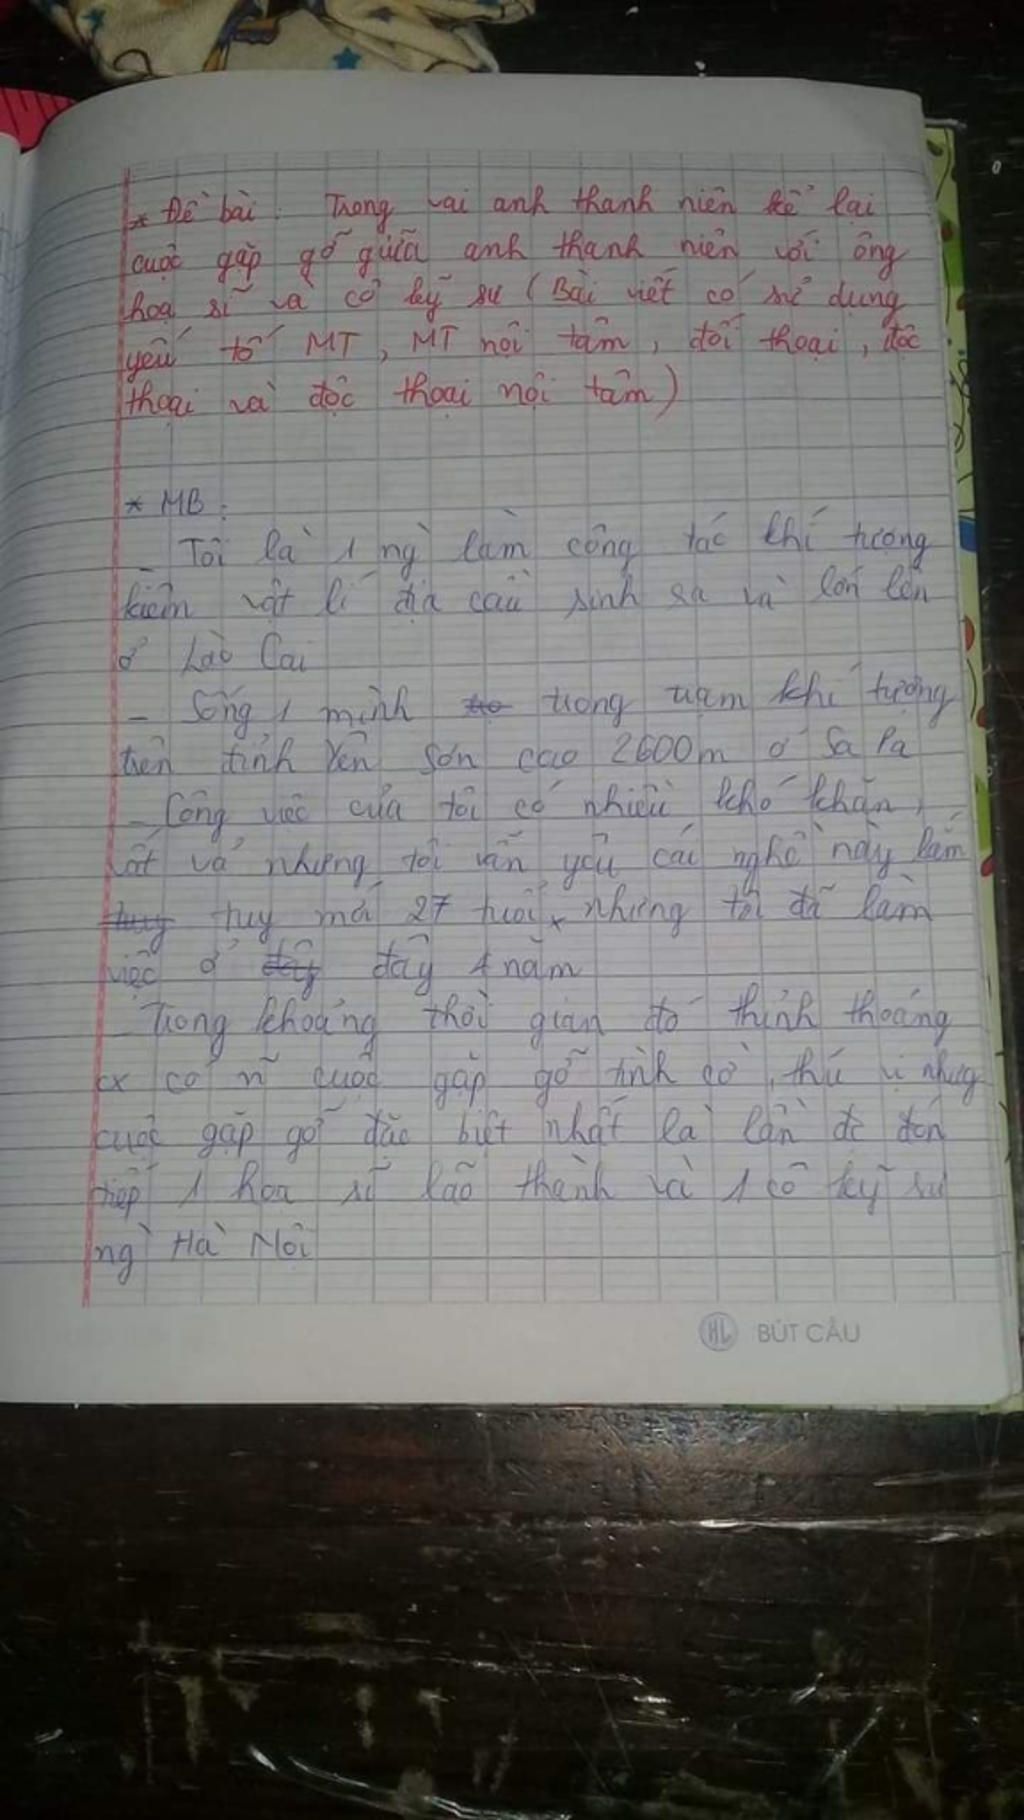 * Đề bài : Trong vai anh thanh niên kể lại
cuộc gặp gỡ giữa anh thanh niên với ông
hoạ sĩ và cô kỹ sư ( Bài viết có sử dụng
yếu tố MT, MT nội tâm, đối thoại, độc
thoại và độc thoại nội tâm)
* MB :
- Tôi là 1 ng` làm công tác khí tượng
kiêm vật lí địa cầu sinh ra và lớn lên
ở Lào Cai
- Sống 1 mình trong trạm khí tượng
trên đỉnh Yên Sơn cao 2600m ở Sa Pa
- Công việc của tôi có nhiều khó khăn,
vất vả nhưng tôi vẫn yêu cái nghề này lắm
tuy mới 27 tuổi nhưng tôi đã làm
việc ở đây 4 năm
- Trong khoảng thời gian đó thỉnh thoảng
cx có n~ cuộc gặp gỡ tình cờ, thú vị nhưng
cuộc gặp gỡ đặc biệt nhất là lần đc đón
tiếp 1 hoạ sĩ lão thành và 1 cô kỹ sư
ng` Hà Nội
HL BÚT CẦU